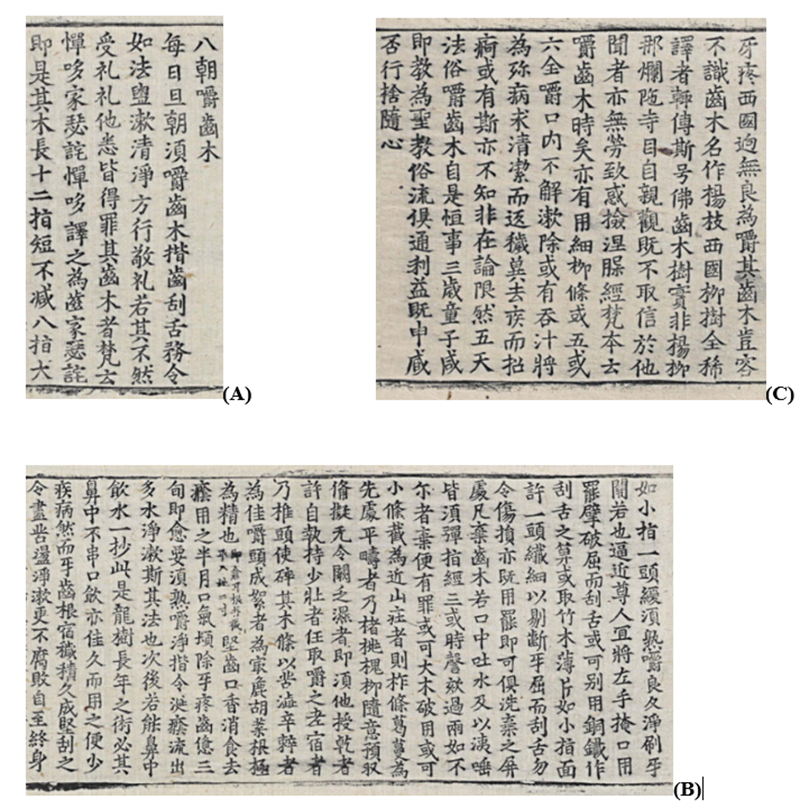 八朝嚼齒木
每日旦朝須嚼齒木揩齒刮舌務令
如法盥漱清淨方行敬礼若其不然
受礼礼他悉皆得罪其齒木者梵云
憚哆家瑟詫憚哆譯之為齒家瑟詫
即是其木長十二指短不減八指大
(A)
如小指一頭緩須熟嚼良久淨刷牙
關若也逼近尊人宜將左手掩口用
罷擘破屈而刮舌或可別用銅鐵作
刮舌之箅或取竹木薄片如小指面
許一頭纖細以剔斷牙屈而刮舌勿
令傷損亦既用罷即可俱洗棄之屏
處凡棄齒木若口中吐水及以洟唾
皆須彈指經三或時謦欬過兩如不
尒者棄便有罪或可大木破用或可
小條截為近山庄者則柞條葛蔓為
先處平疇者乃楮桃槐柳隨意預収
備擬无令闕乏濕者即須他授乾者
許自執持少壯者任取嚼之老宿者
乃推頭使碎其木條以苦澁辛辣者
為佳嚼頭成絮者為冣麁胡葉根極
為精也堅齒口香消食去
癊用之半月口氣頓除牙疼齒憊三
旬即愈要須熟嚼淨揩令涎癊流出
多水淨漱斯其法也次後若能鼻中
飲水一抄此是龍樹長年之術必其
鼻中不串口飲亦佳久而用之便少
疾病然而牙齒根宿穢積久成堅刮之
令盡苦盪淨漱更不腐敗自至終身
(B)
牙疼西國逈無良為嚼其齒木豈容
不識齒木名作楊枝西國柳樹全稀
譯者輙傳斯号佛齒木樹實非楊柳
那爛陁寺目自親觀既不取信於他
聞者亦無勞致惑撿涅槃經梵本云
嚼齒木時矣亦有用細柳條或五或
六全嚼口內不解漱除或有吞汁將
為殄病求清潔而返穢兾去疾而招
痾或有斯亦不知非在論限然五天
法俗嚼齒木自是恒事三歲童子咸
即教為聖教俗流俱通利益既申臧
否行捨隨心
(C)